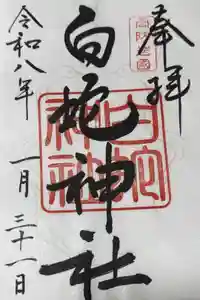 奉拝
白蛇神社
令和八年 一月 三十一日
白蛇神社